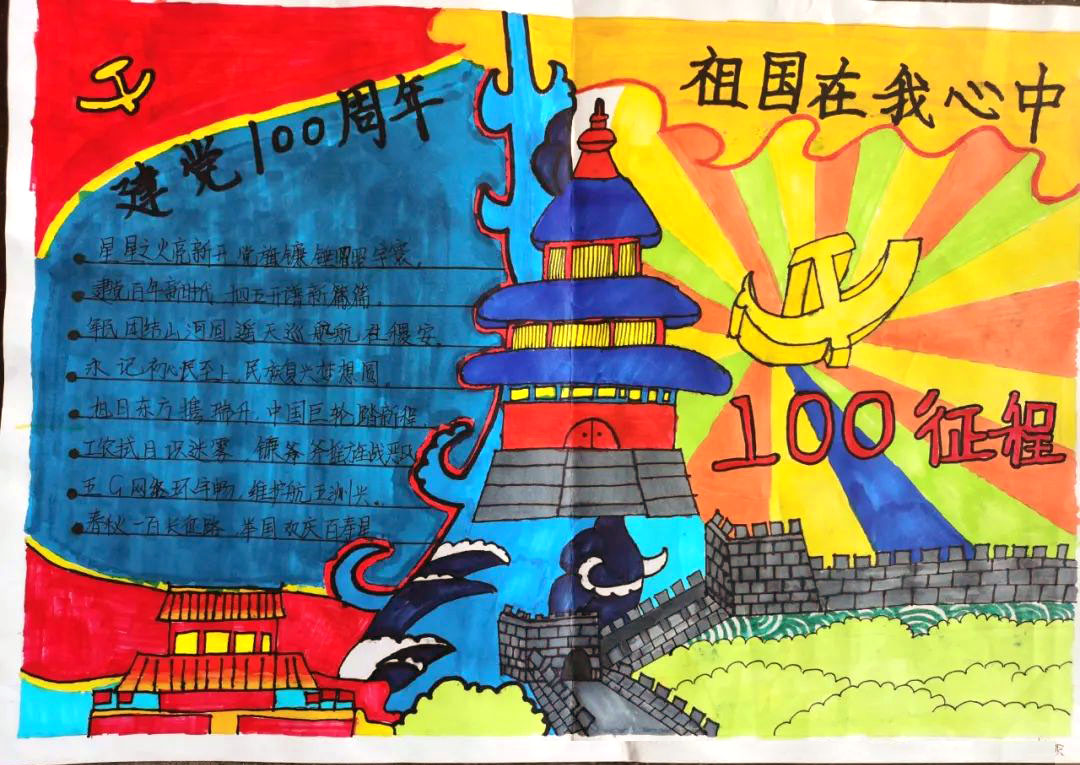 建党100周年
祖国在我心中
星星之火亮新开 党旗镰锤照宇寰。
建党百年新时代 四五开谱新篇篇。
军民团结山河固 遥天巡航社稷安。
永记初心民至上，民族复兴梦想圆。
旭日东方携瑞升，中国巨轮踏新程
工农拭目识迷雾 镰斧 战恶
五G网络环宇畅，维护航 五洲兴。
春秋一百长征路 举国欢庆百寿
100征程